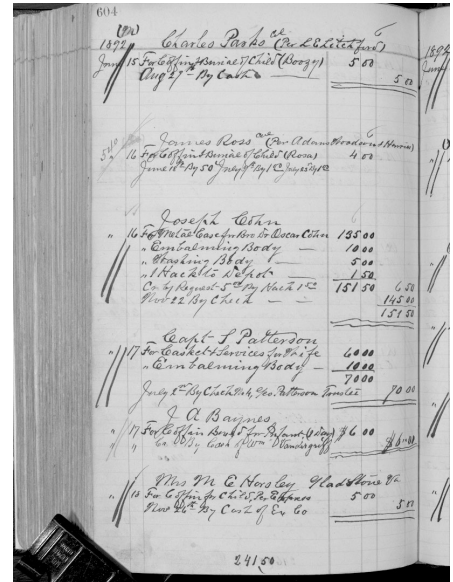 604
1892 Charles Parks col (Per L E Litchford)
June 15 For Coffin & Burial of Child (Boozy) 5 00
Aug 27th By Cash 5 00
James Ross col (Per Adam Woodson & Harris)
" 16 For Coffin & Burial of Child (Rosa) 4 00
June 18th By 50 July 9th By 1 00 July
Joseph Cohn
" 16 For Metal Case for Bro Dr Oscar Cohn 135 00
" Embalming Body 10 00
" Washing Body 5 00
" 1 Hack to Depot 1 50
Cr by Request 5 00 By Hack 1 50 151 50 6 50
Nov 22 By Check 145 00
151 50
Capt S Patterson
" 17 For Casket & Services for Wife 60 00
" Embalming Body 10 00
70 00
July 2nd By Check Geo Patterson Trustee 70 00
J A Baynes
" 17 For Coffin Box for Infant (4 Days) $6 00
" Cr By Cash of Wm Vandergrift $6 00
Mrs M E Horsley Gladstone Va
" 18 For Coffin for Child, Per Express 5 00
Nov 26th By Cash of Ex Co 5 00
241 50